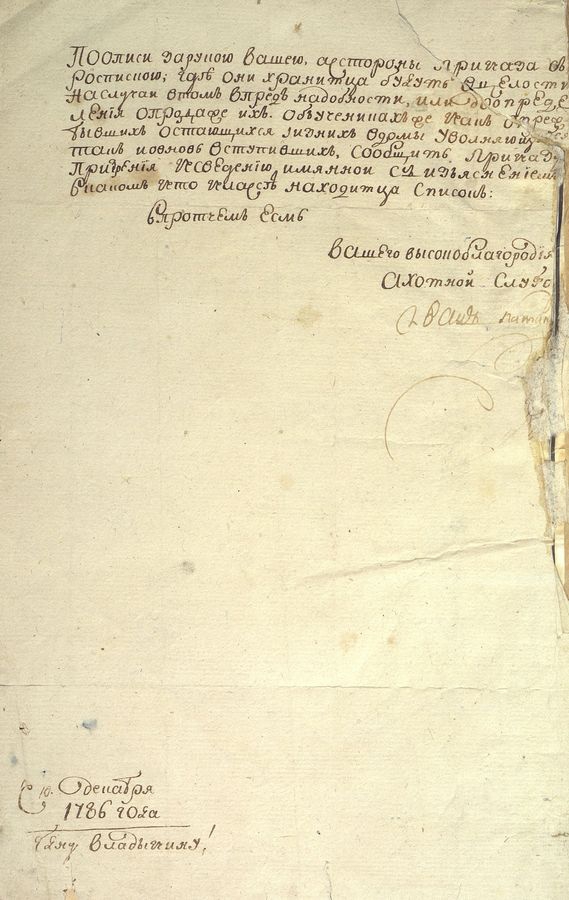 Поописи заруною вашею, астороны Приказа съ
Роспискою; гдѣ они хранитца будутъ вцелости
Наслучаи втомъ впредь надобности, или доопредѣ
ления опродаже ихъ. Обученикахъ же какъ опреж
бывшихъ остающихся и изнихъ вдомы уволняющихся
такъ ивновь вступившихъ, сообщить Приказу
Призрѣния ксведению, имянной съ изъяснениемъ
вкакомъ кто классѣ находитца списокъ:
впротчемъ есмь
вашего высокоблагородия
ахотной слуга
Иванъ
10. декабря
1786 года
владыкину